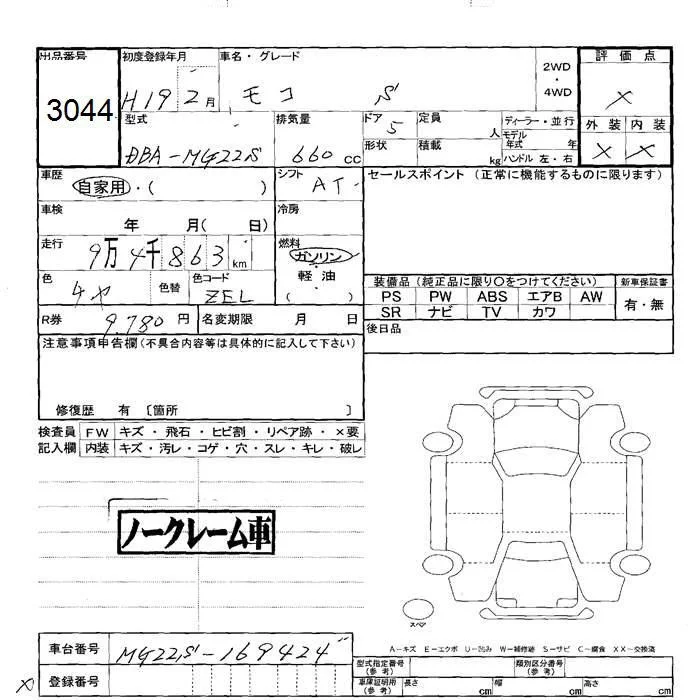 出品番号 初度登録年月 車名・グレード 2WD・4WD 評価点
3044 H19 2月 モコ S ×
型式 排気量 ドア 定員 ディーラー・並行 外装 内装
DBA-MG22S 660 cc 5 人 モデル年式 年 × ×
形状 積載 kg ハンドル 左・右
車歴 シフト セールスポイント (正常に機能するものに限ります)
自家用・( ) AT
車検 冷房
年 月( 日)
走行 燃料
9万4千863 km ガソリン
色 色替 色コード 軽油
ZEL ( )
装備品 (純正品に限り〇をつけてください) 新車保証書
PS PW ABS エアB AW 有・無
SR ナビ TV カワ
R券 9.780円 名変期限 月 日
後日品
注意事項申告欄(不具合内容等は具体的に記入して下さい)
修復歴 有 〔箇所 〕
検査員 FW キズ・飛石・ヒビ割・リペア跡・×要
記入欄 内装 キズ・汚レ・コゲ・穴・スレ・キレ・破レ
ノークレーム車
スペア
A-キズ E-エクボ U-凹み W-補修跡 S-サビ C-腐食 XX-交換済
車台番号 MG22S-169424
型式指定番号(参考) 類別区分番号(参考)
登録番号
車庫証明用(参考) 長さ cm 幅 cm 高さ cm